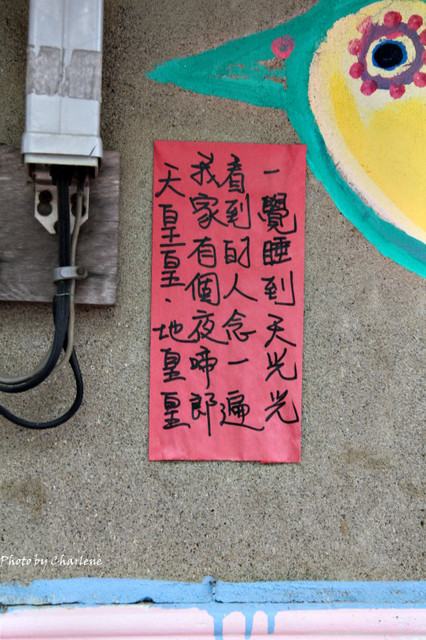 天皇皇、地皇皇
我家有個夜啼郎
看到的人念一遍
一覺睡到天光光
Photo by Charlene